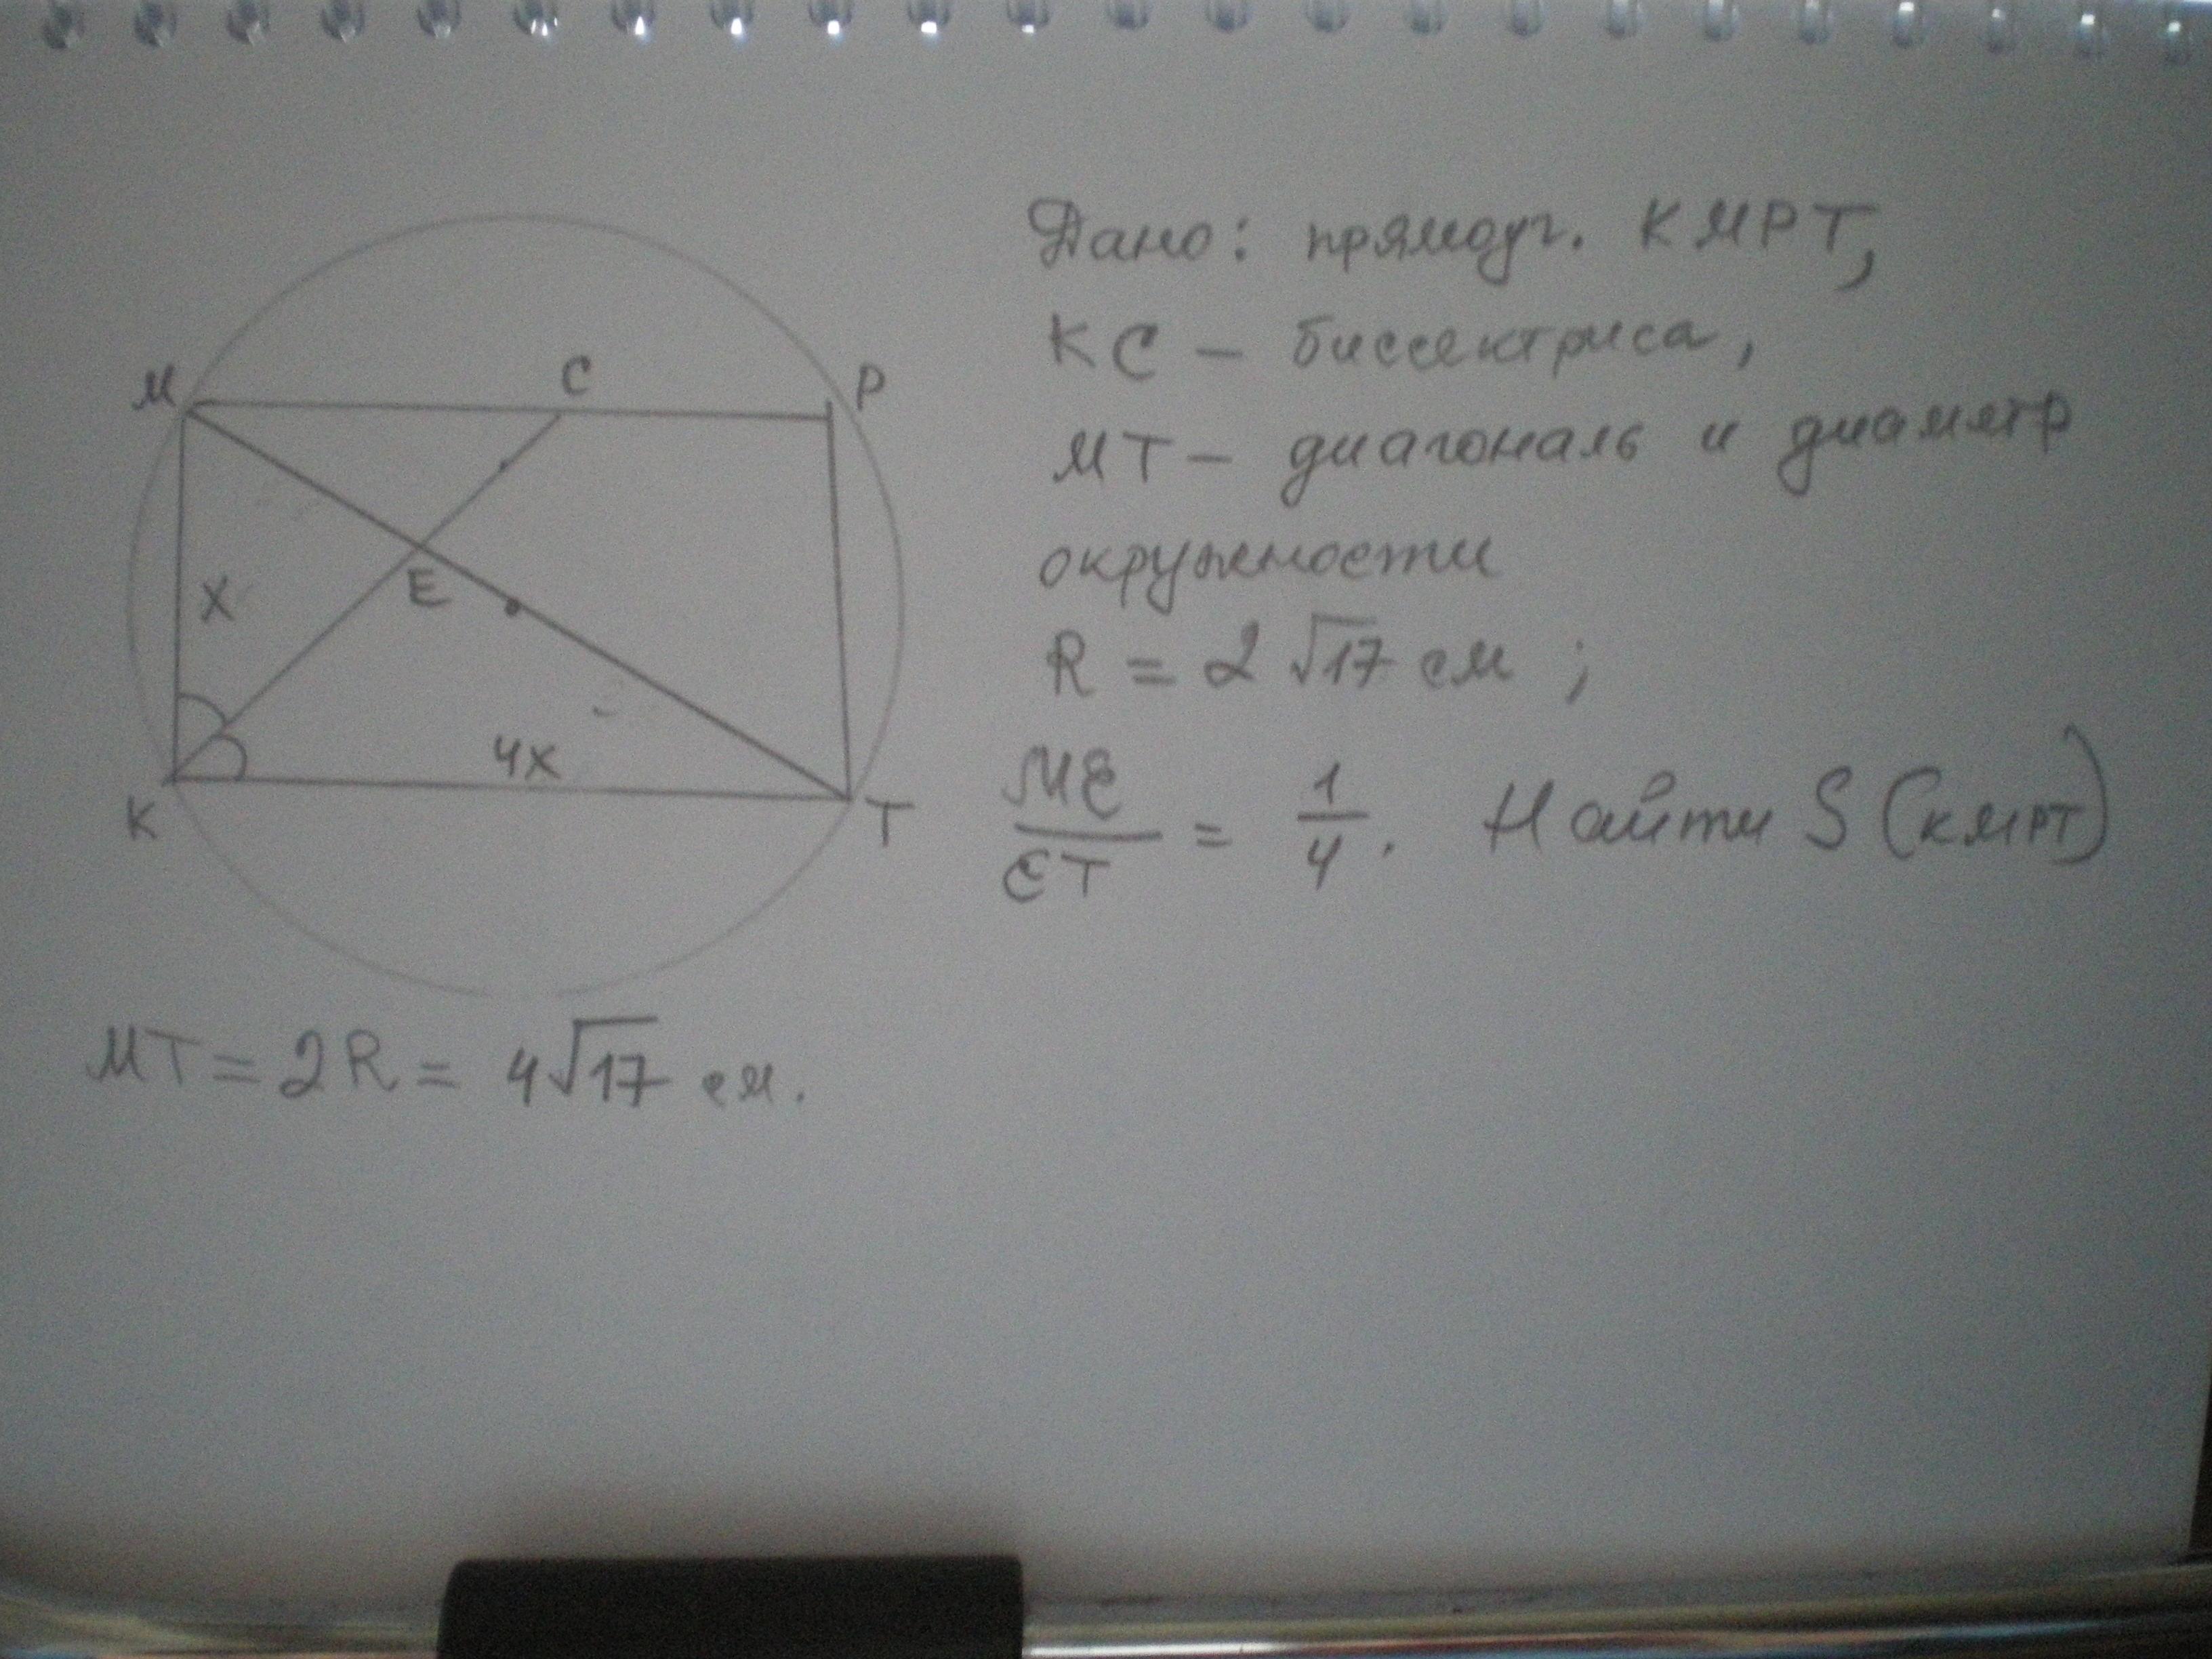 M C P
X E
4X
K T
Дано: прямоуг. KMPT,
KC – биссектриса,
MT – диагональ и диаметр
окружности
R = 2√17 см ;
ME/ET = 1/4. Найти S (KMPT)
MT = 2R = 4√17 см.